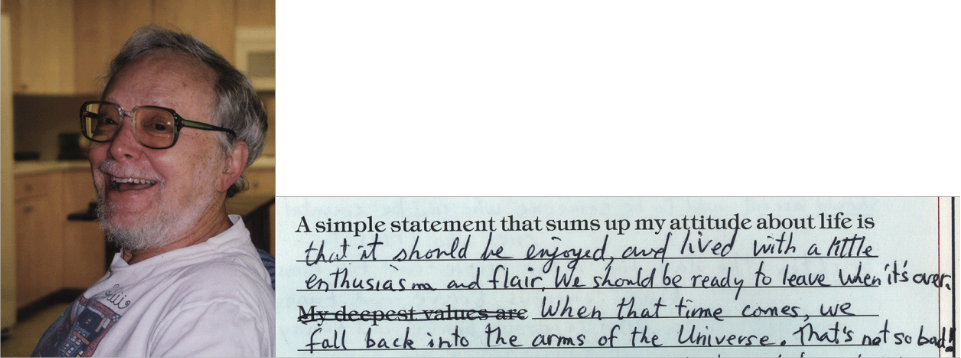 A simple statement that sums up my attitude about life is
that it should be enjoyed, and lived with a little
enthusiasm and flair. We should be ready to leave when it's over.
My deepest values are When that time comes, we
fall back into the arms of the Universe. That's not so bad!